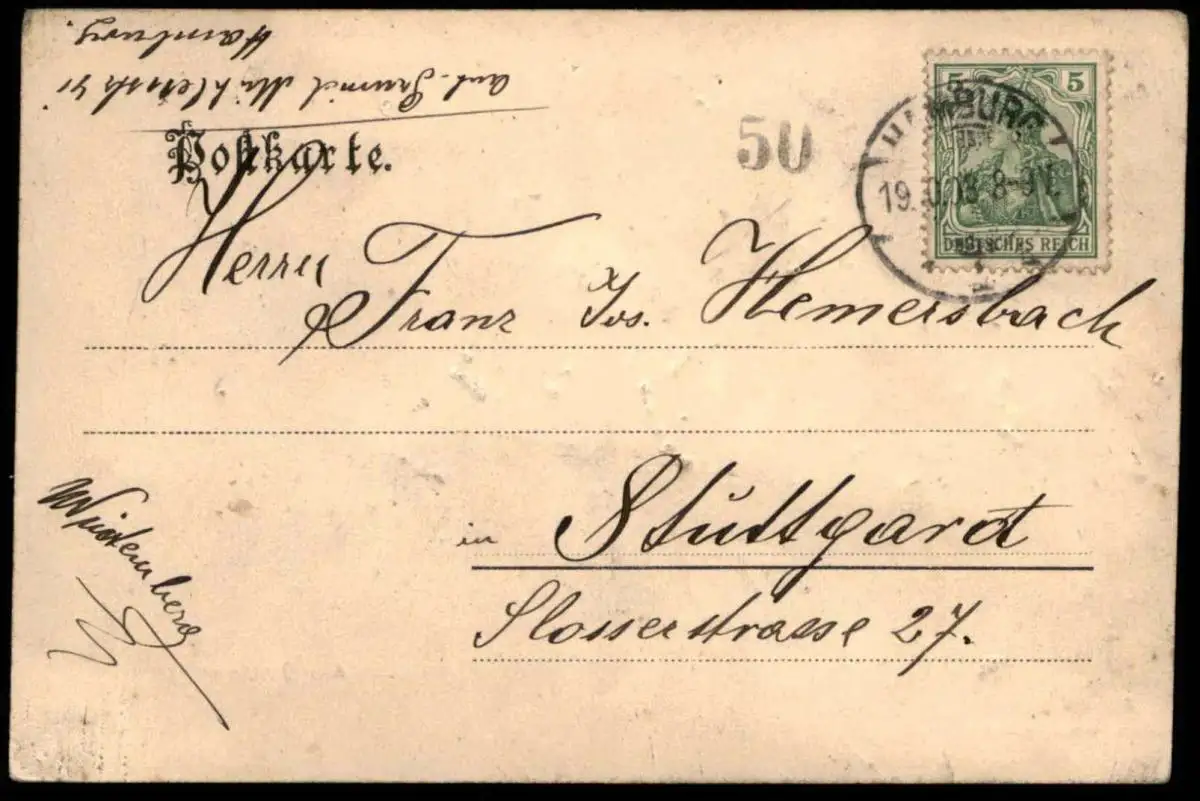 Hamburg.
Postkarte.
50
5 5
HAMBURG
8-9V.
DEUTSCHES REICH
Herrn
Franz Jos. Hemersbach
in Stuttgardt
Slosserstrasse 27.